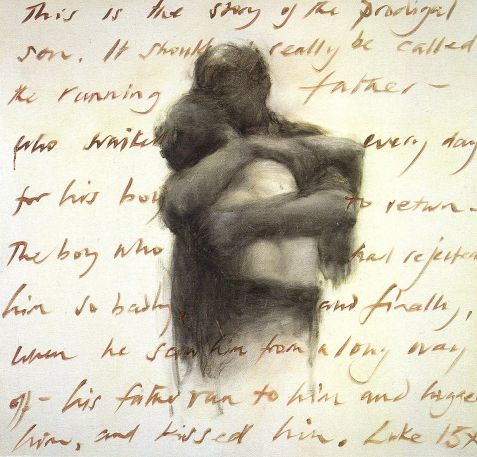 This is the story of the prodigal
son. It should really be called
the running father -
who waited every day
for his boy to return -
The boy who had rejected
him so badly, and finally,
when he saw him from a long way
off - his father ran to him and hugged
him, and kissed him. Luke 15